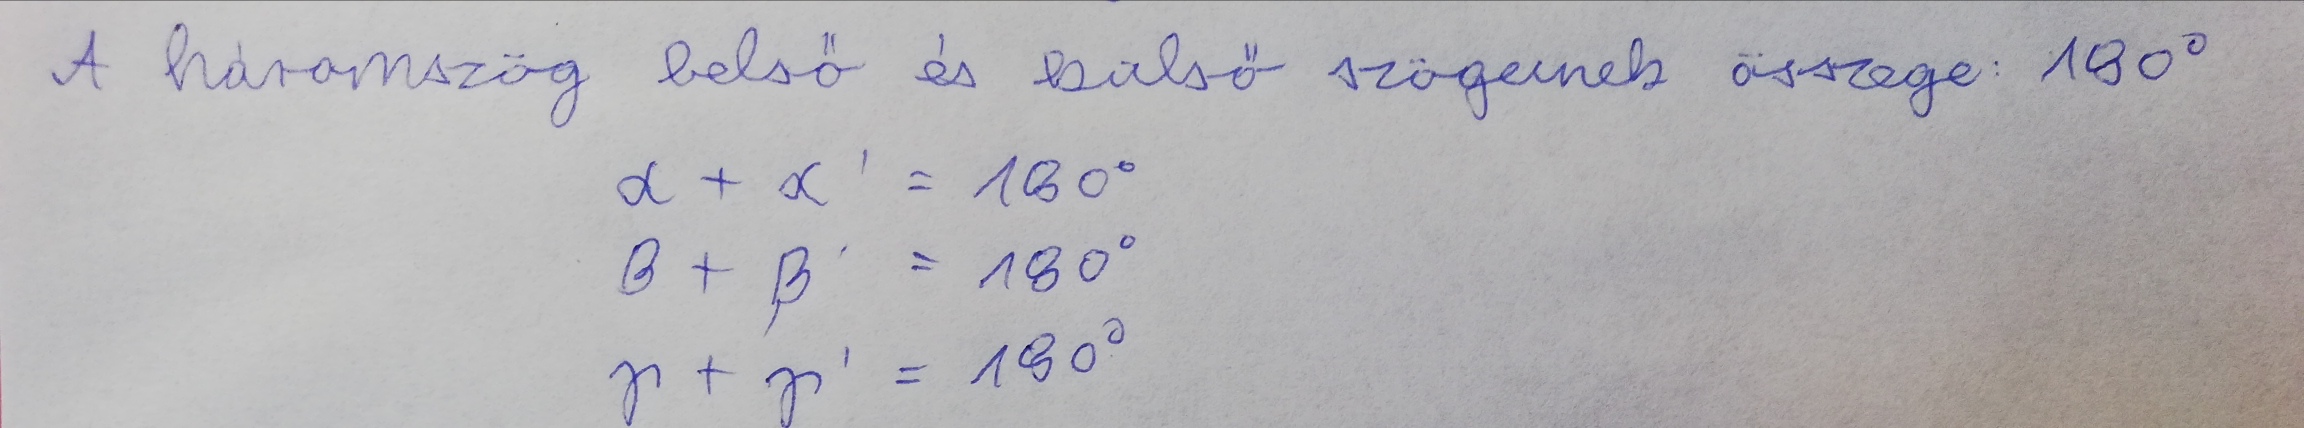 A háromszög belső és külső szögeinek összege: 180°
α + α' = 180°
β + β' = 180°
γ + γ' = 180°